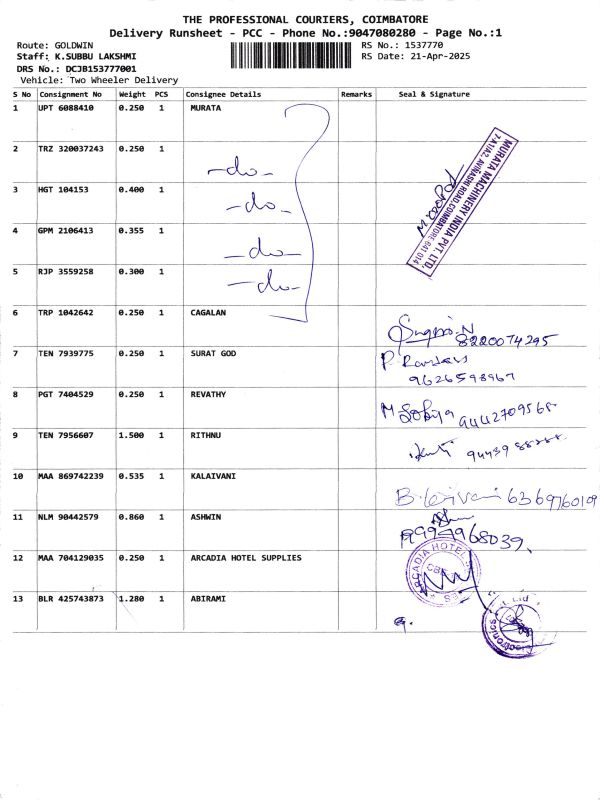 THE PROFESSIONAL COURIERS, COIMBATORE
Delivery Runsheet - PCC - Phone No.:9047080280 - Page No.:1
Route: GOLDWIN RS No.: 1537770
Staff: K.SUBBU LAKSHMI RS Date: 21-Apr-2025
DRS No.: DCJB153777001
Vehicle: Two Wheeler Delivery
S No Consignment No Weight PCS Consignee Details Remarks Seal & Signature
1 UPT 6088410 0.250 1 MURATA
2 TRZ 320037243 0.250 1
-do-
3 HGT 104153 0.400 1
-do-
4 GPM 2106413 0.355 1
-do-
5 RJP 3559258 0.300 1
-do-
MURATA MACHINERY INDIA PVT. LTD,
7-A1/A2, AVINASHI ROAD, COIMBATORE 641 014
6 TRP 1042642 0.250 1 CAGALAN
8220074295
7 TEN 7939775 0.250 1 SURAT GOD
9626598967
8 PGT 7404529 0.250 1 REVATHY
9442709568
9 TEN 7956607 1.500 1 RITHNU
10 MAA 869742239 0.535 1 KALAIVANI
6369760109
11 NLM 90442579 0.860 1 ASHWIN
12 MAA 704129035 0.250 1 ARCADIA HOTEL SUPPLIES
ARCADIA HOTEL
13 BLR 425743873 1.280 1 ABIRAMI